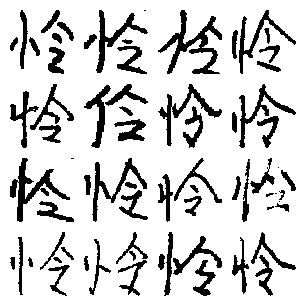 怜怜怜怜
怜怜怜
怜怜怜
怜怜怜